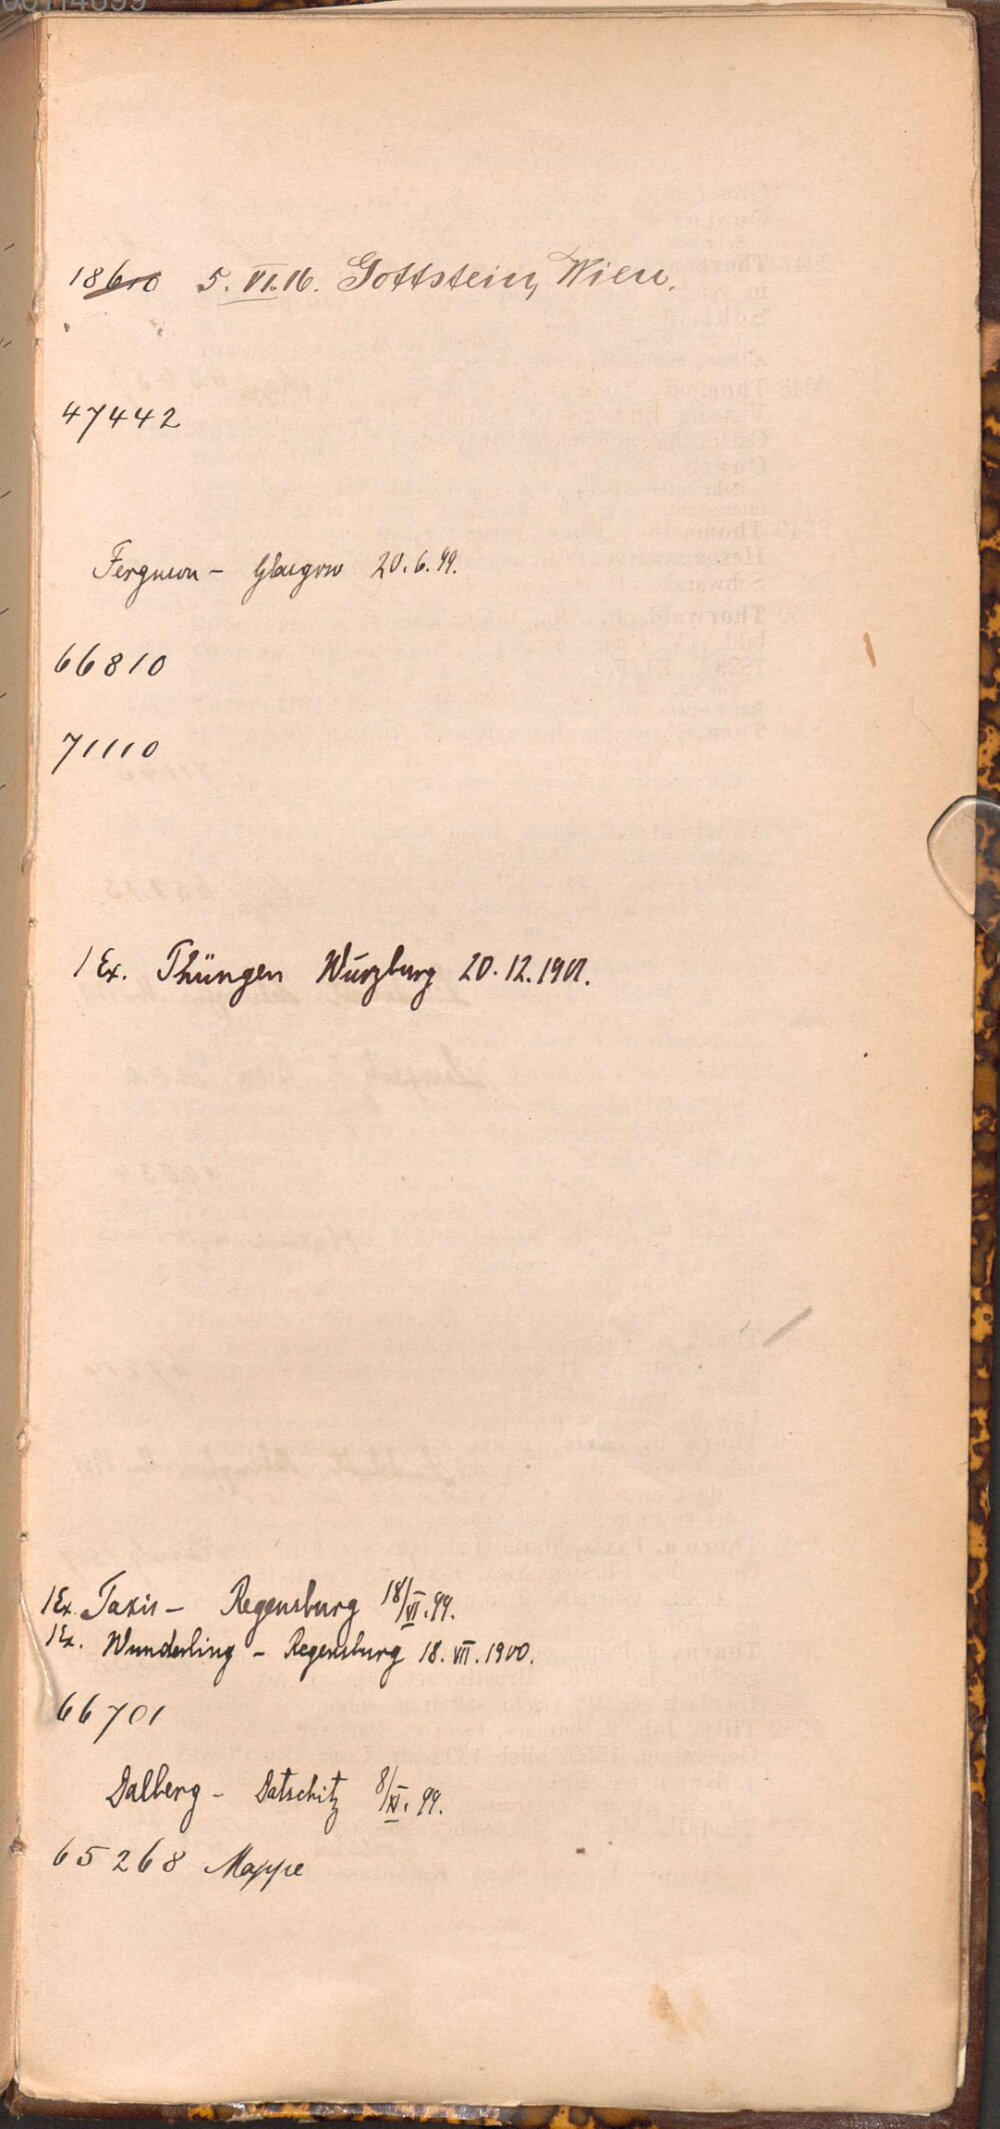 18610 5. VI. 16. Gottstein, Wien.
47442
Ferguson - Glasgow 20.6.99.
66810
71110
1 Ex. Thüngen Würzburg 20.12.1901.
1 Ex. Taxis - Regensburg 18/VI. 99.
1 Ex. Wunderling - Regensburg 18. VII. 1900.
66701
Dalberg - Datschitz 8/XI. 99.
65268 Mappe